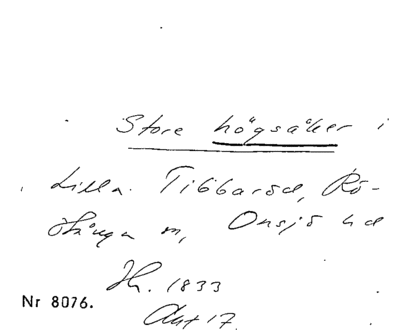 Store högsåker i
Lilla Tibbaröd, Rö-
stånga sn, Onsjö hd
Jh. 1833
Akt 17.
Nr 8076.